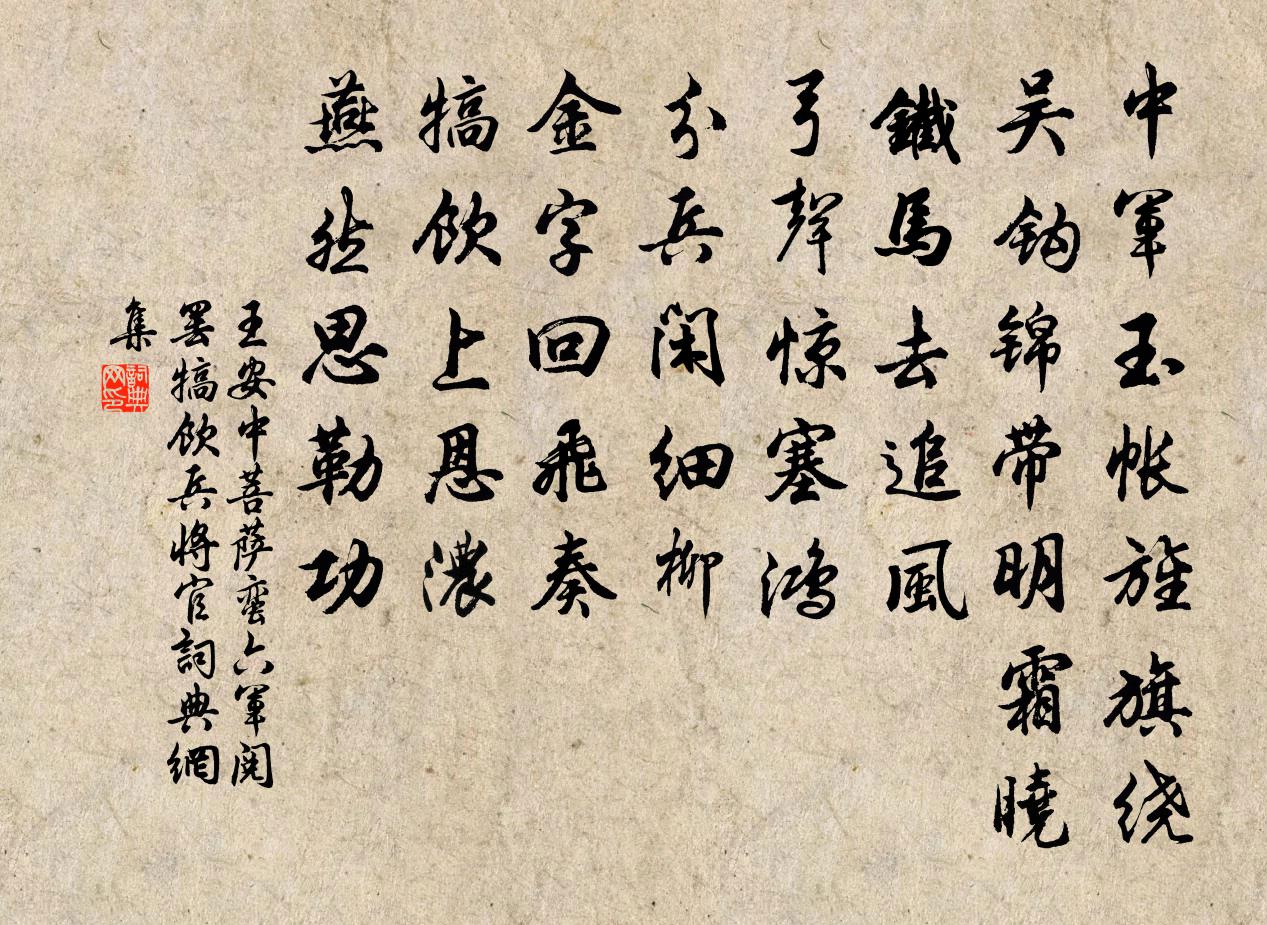 中軍玉帐旌旗绕
吴钩锦带明霜曉
鐵馬去追風
弓聲惊塞鴻
分兵閑细柳
金字回飛奏
犒飲上恩濃
燕然思勒功
王安中菩萨蛮六軍阅
罢犒飲兵將官詞典網
集
詞典
网印